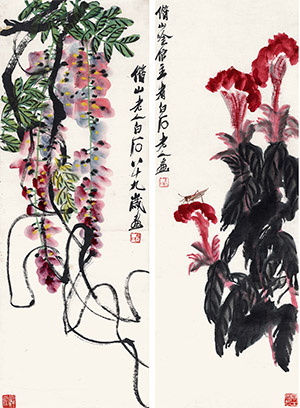 借山老人白石八十九歲畫
借山吟館主者白石老人畫